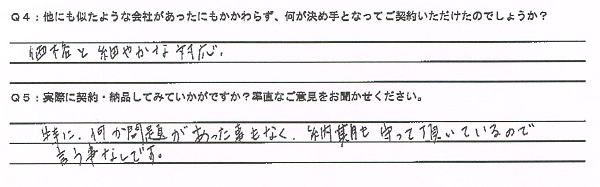 Q4：他にも似たような会社があったにもかかわらず、何が決め手となってご契約いただけたのでしょうか？
価格と細やかな対応。
Q5：実際に契約・納品してみていかがですか？率直なご意見をお聞かせください。
特に、何か問題があった事もなく、納期も守って頂いているので
言う事なしです。